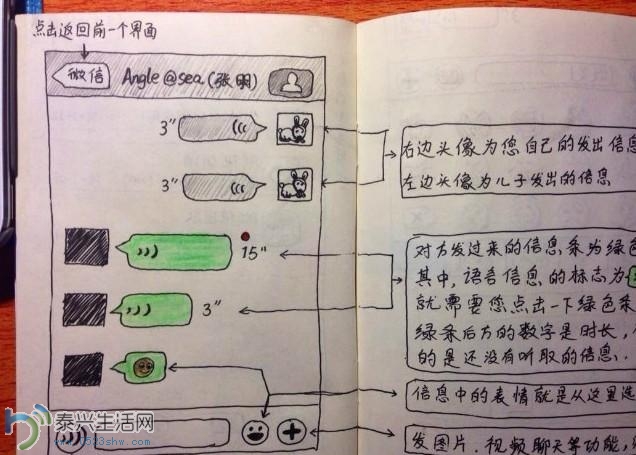 点击返回前一个界面
微信
Angle@sea(张明)
3"
3"
15"
3"
右边头像为您自己的发出信息
左边头像为儿子发出的信息
对方发过来的信息条为绿色
其中,语言信息的标志为
就需要您点击一下绿色条
绿条后方的数字是时长,
的是还没有听取的信息.
信息中的表情就是从这里选
发图片.视频聊天等功能,
泰兴生活网
www.t523shw.com